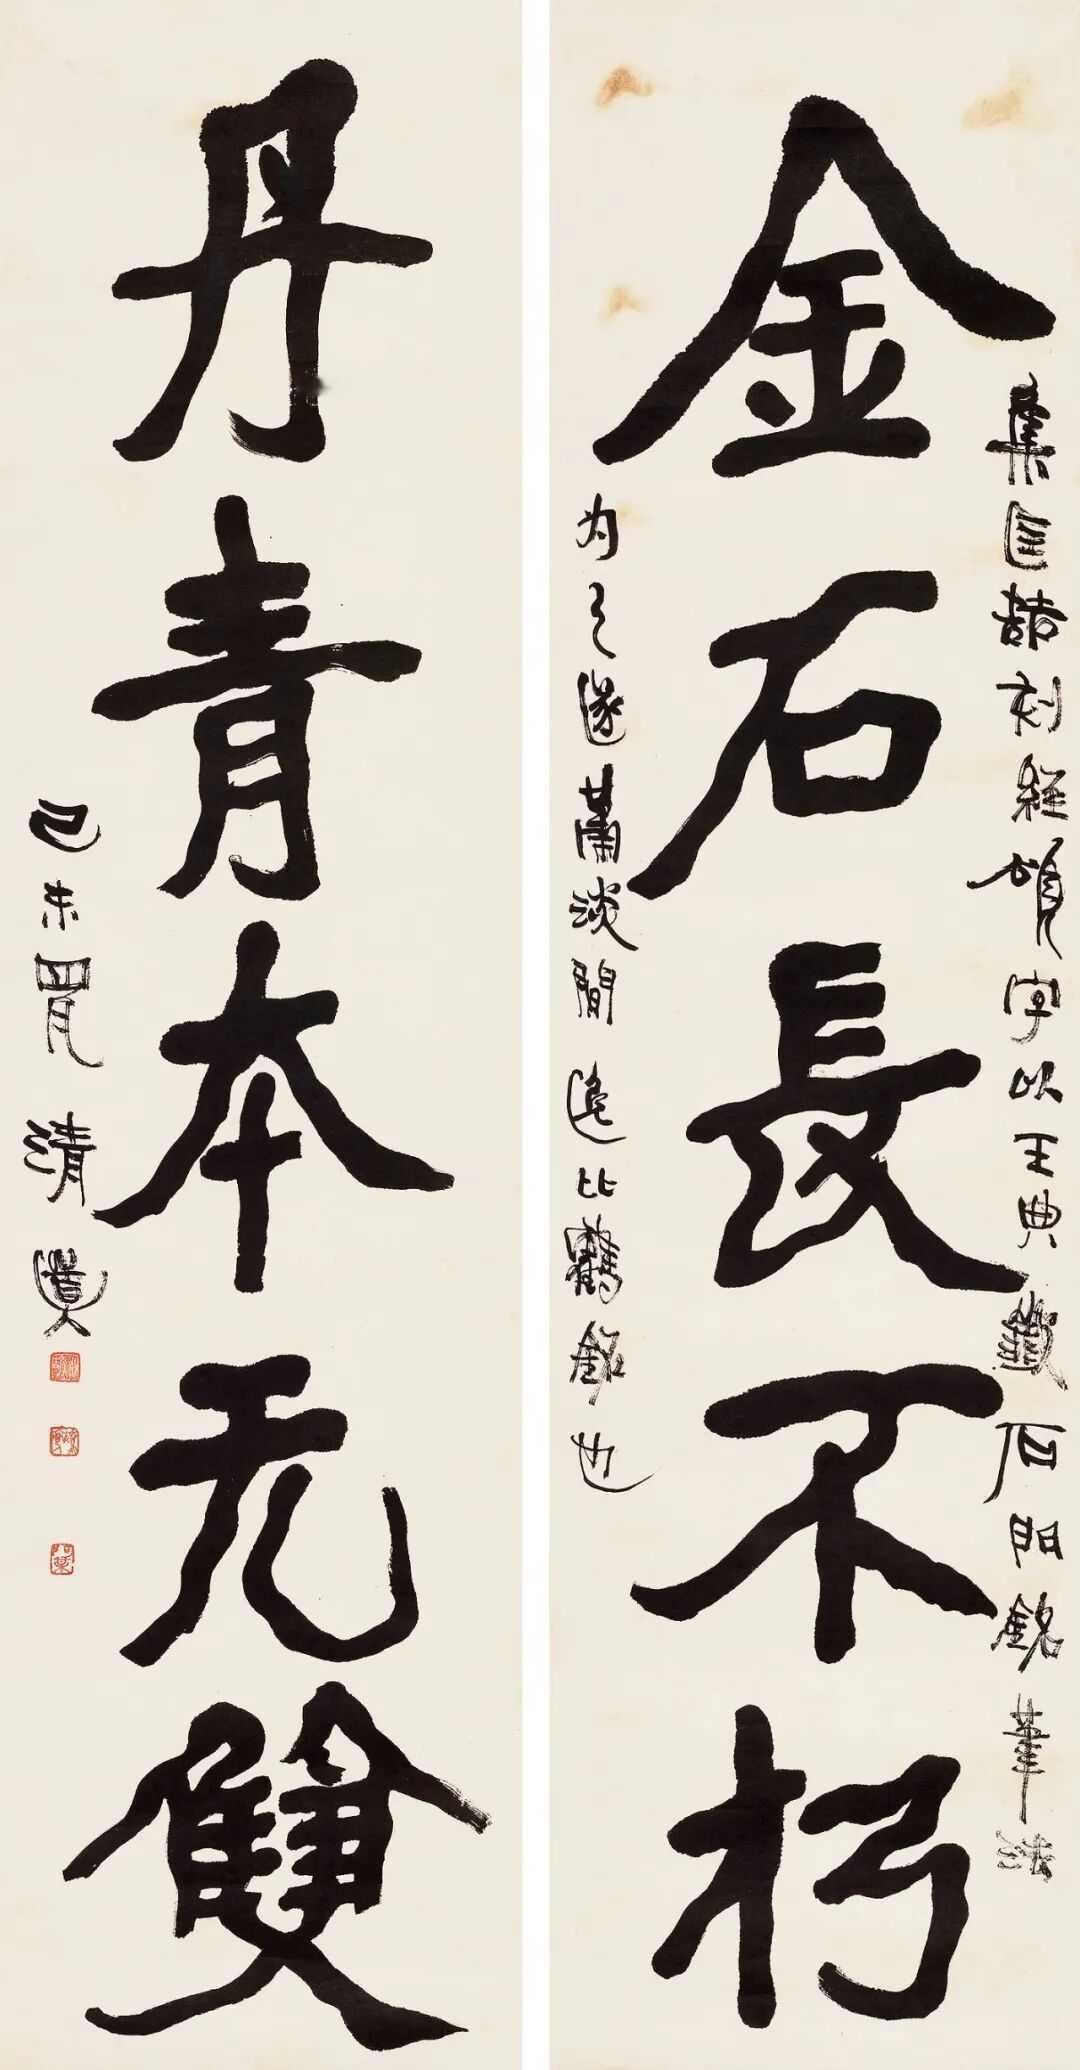 金石長不朽
集匡喆刻經頌字以王典籤石門銘筆法
为之遂蕭淡閒遠比鶴銘也
丹青本无雙
己未四月清道人